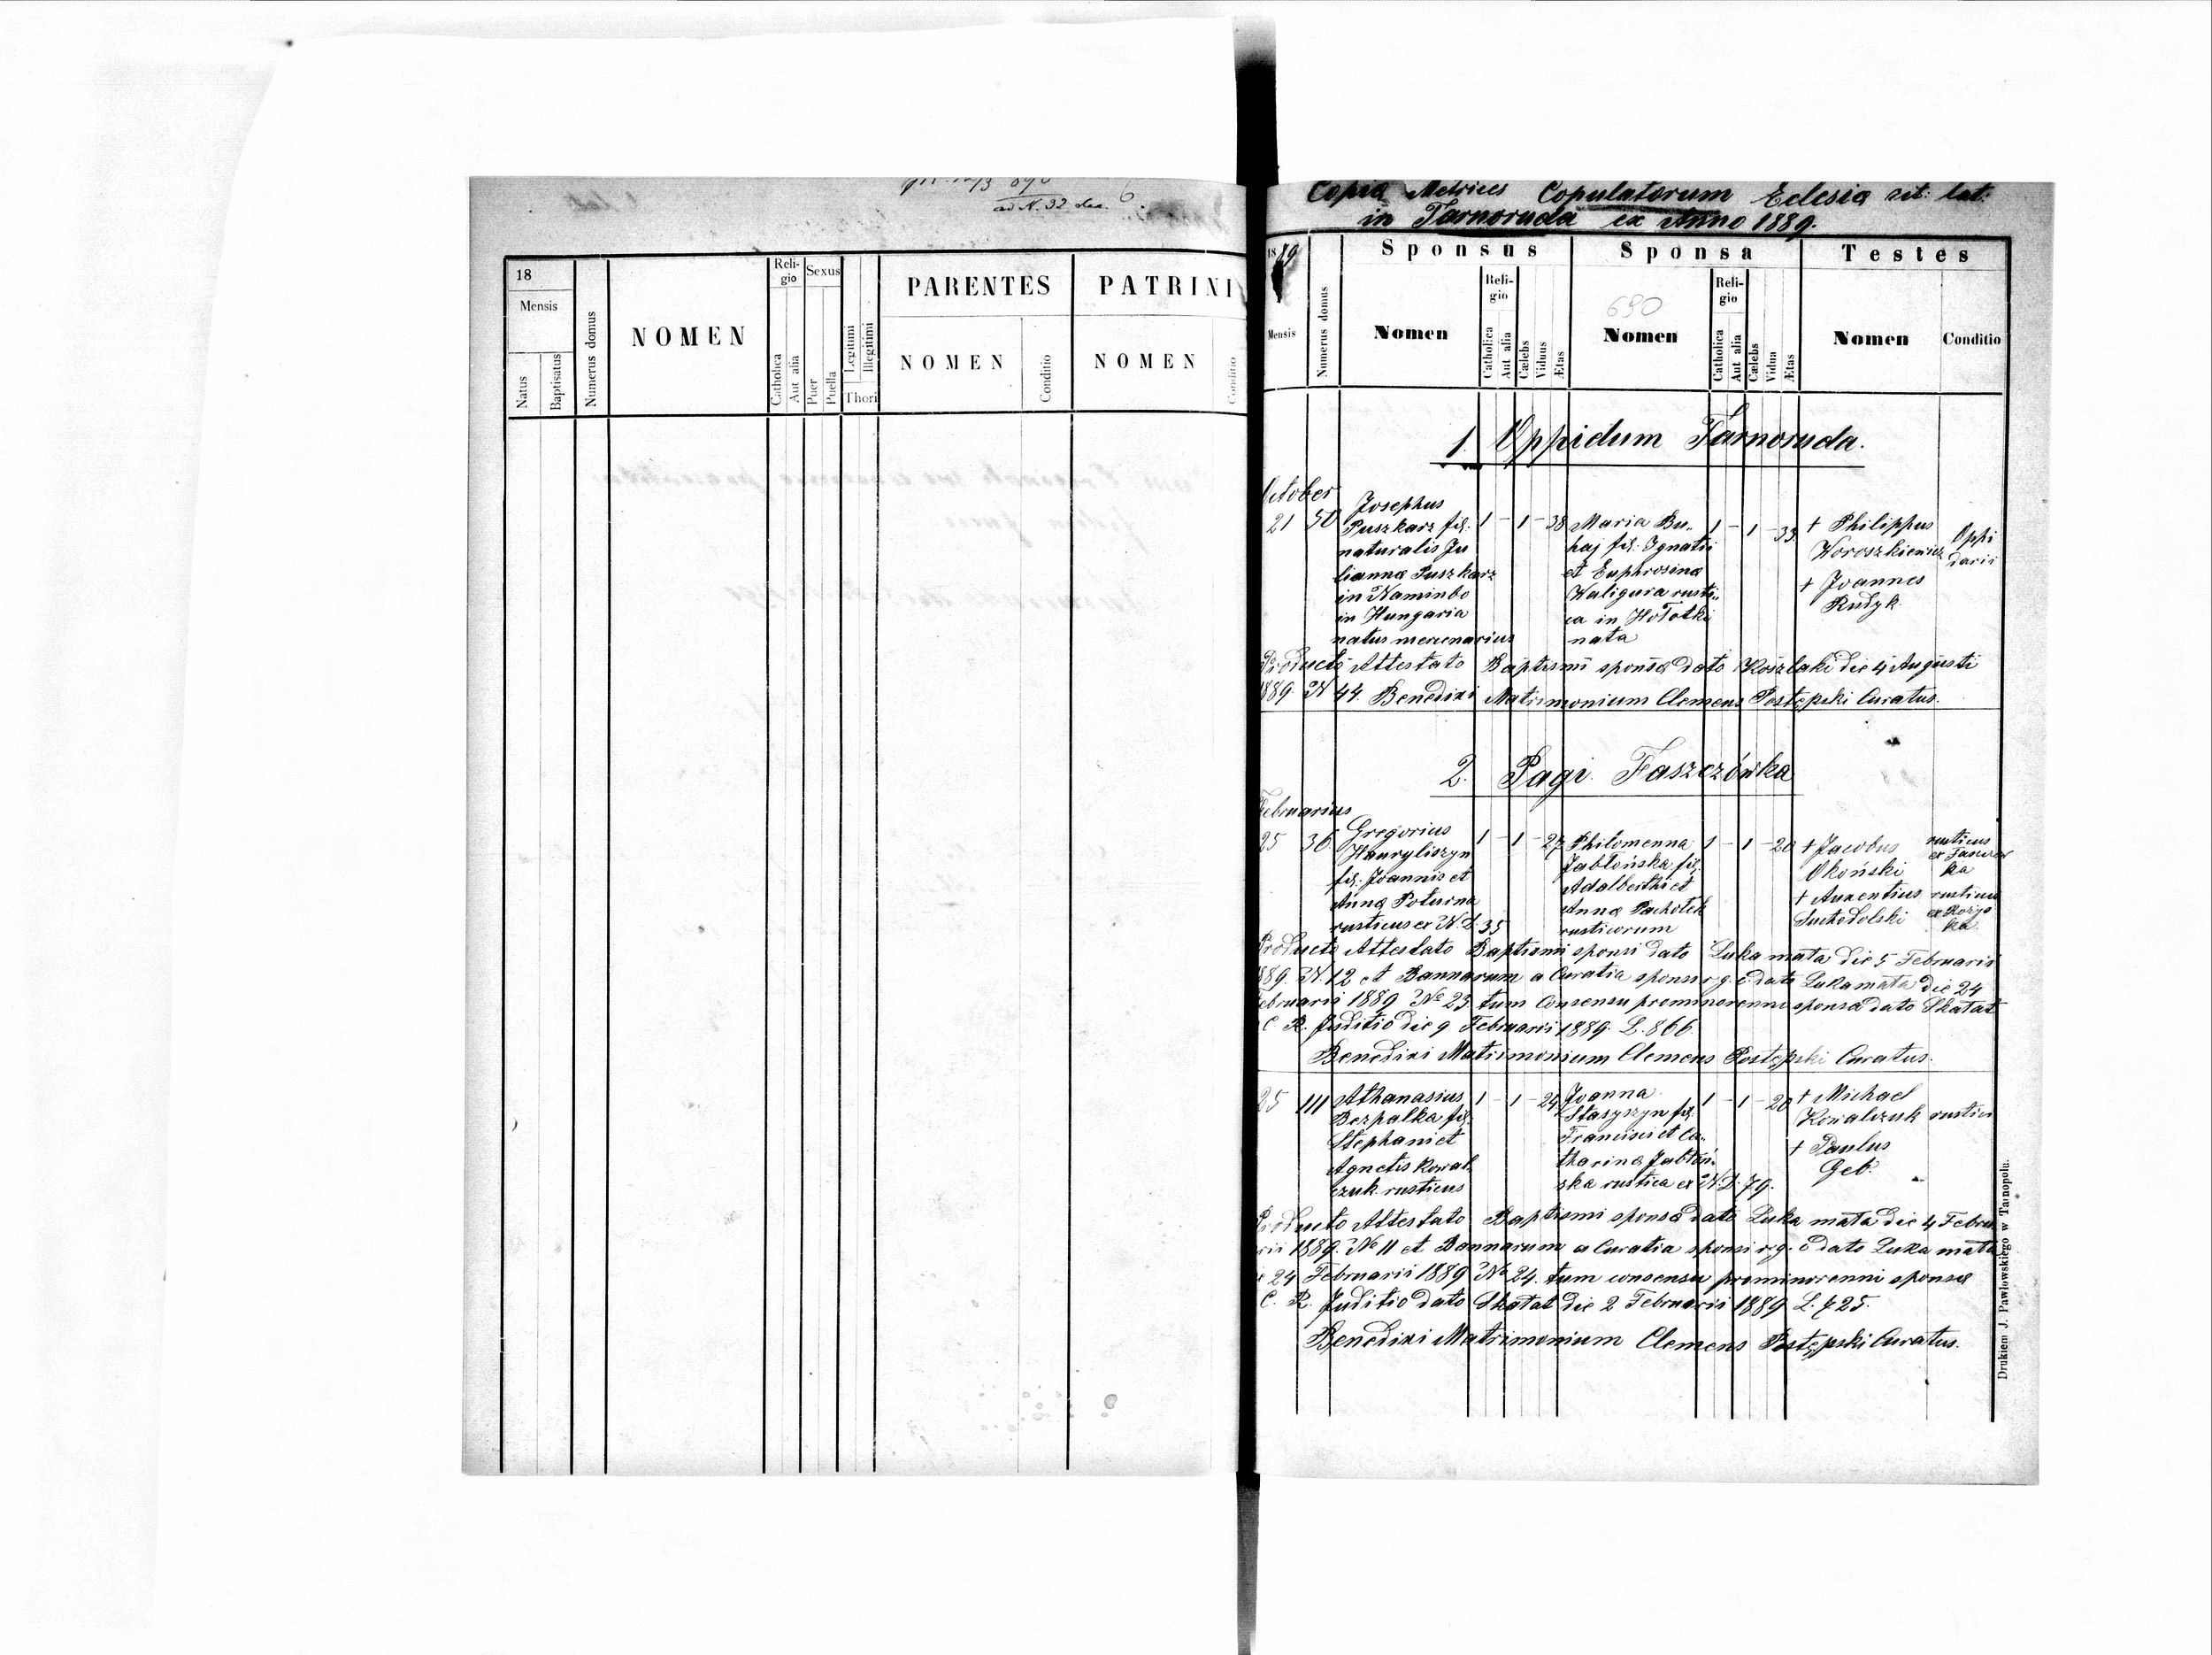 ad N. 32 dea. 6.
18
Mensis
Natus
Baptisatus
Numerus domus
NOMEN
Reli-
gio
Catholica
Aut alia
Sexus
Puer
Puella
Legitimi
Illegitimi
Thori
PARENTES
NOMEN
Conditio
PATRINI
NOMEN
Conditio
Copia Metrices Copulatorum Eclesia rit: lat:
in Tarnoruda ex Anno 1889.
1889
Mensis
Numerus domus
Sponsus
Nomen
Reli-
gio
Catholica
Aut alia
Cælebs
Viduus
Ætas
Sponsa
690
Nomen
Reli-
gio
Catholica
Aut alia
Cælebs
Vidua
Ætas
Testes
Nomen
Conditio
1. Oppidum Tarnoruda.
October
21 50
Josephus
Puszkarz fil.
naturalis Ju
lianna Puszkarz
in Naminbo
in Hungaria
natus mercenarius
1 - 1 - 38
Maria Bu„
haj fil. Ignatii
et Euphrosina
Waligura rusti„
ca in Hołotki
nata
1 - 1 - 33
† Philippus
Woroszkiewicz
† Joannes
Rudyk.
Oppi
darii
Producto Attestato Baptismi sponsa dato Koszlaki die 4 Augusti
1889. N 44. Benedixi Matrimonium Clemens Postępski Curatus.
2. Pagi Faszczówka
Februarius
25 36
Gregorius
Hauryliszyn
fil. Joannis et
Anna Poturna
rusticus ex N. D. 35
1 - 1 - 27
Philomenna
Jabłońska fil.
Adalberthi et
Anna Pachołek
rusticorum
1 - 1 - 20
† Jacobus
Okoński
† Auxentius
Suchodolski
rusticus
ex Faszczow
ka
rusticus
ex Rożys
ka
Producto Attestato Baptismi sponsi dato Luka mała die 5 Februarii
1889. N. 12 et Bannarum a Curatia sponsi r. g. c dato Luka mała die 24
Februarii 1889 No 23 tum Consensu prominorenni sponsa dato Skałat
C. R. Juditio die 9 Februarii 1889. L. 866.
Benedixi Matrimonium Clemens Postępski Curatus.
25 111
Athanasius
Bezpalka fil.
Stephani et
Agnetis Kowal
czuk rusticus
1 - 1 - 24
Joanna
Stasyszyn fil.
Francisci et Ca„
tharina Jabłoń„
ska rustica ex N. D. 79.
1 - 1 - 20
† Michael
Kowalczuk
† Paulus
Geb.
rustici
Producto Attestato Baptismi sponsa dato Luka mała die 4 Februa
rii 1889. No 11 et Bannarum a Curatia sponsi r. g. c dato Luka mała
24 Februarii 1889 No 24. tum consensu prominorenni sponsa
C. R. Juditio dato Skałat die 2 Februarii 1889 L. 725.
Benedixi Matrimonium Clemens Postępski Curatus.
Drukiem J. Pawłowskiego w Tarnopolu.